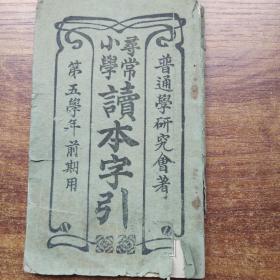 普通學研究會著
尋常
小學
讀本字引
第五學年前期用